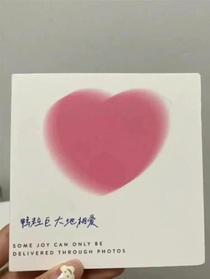 鸭粒巨大地相爱
SOME JOY CAN ONLY BE
DELIVERED THROUGH PHOTOS